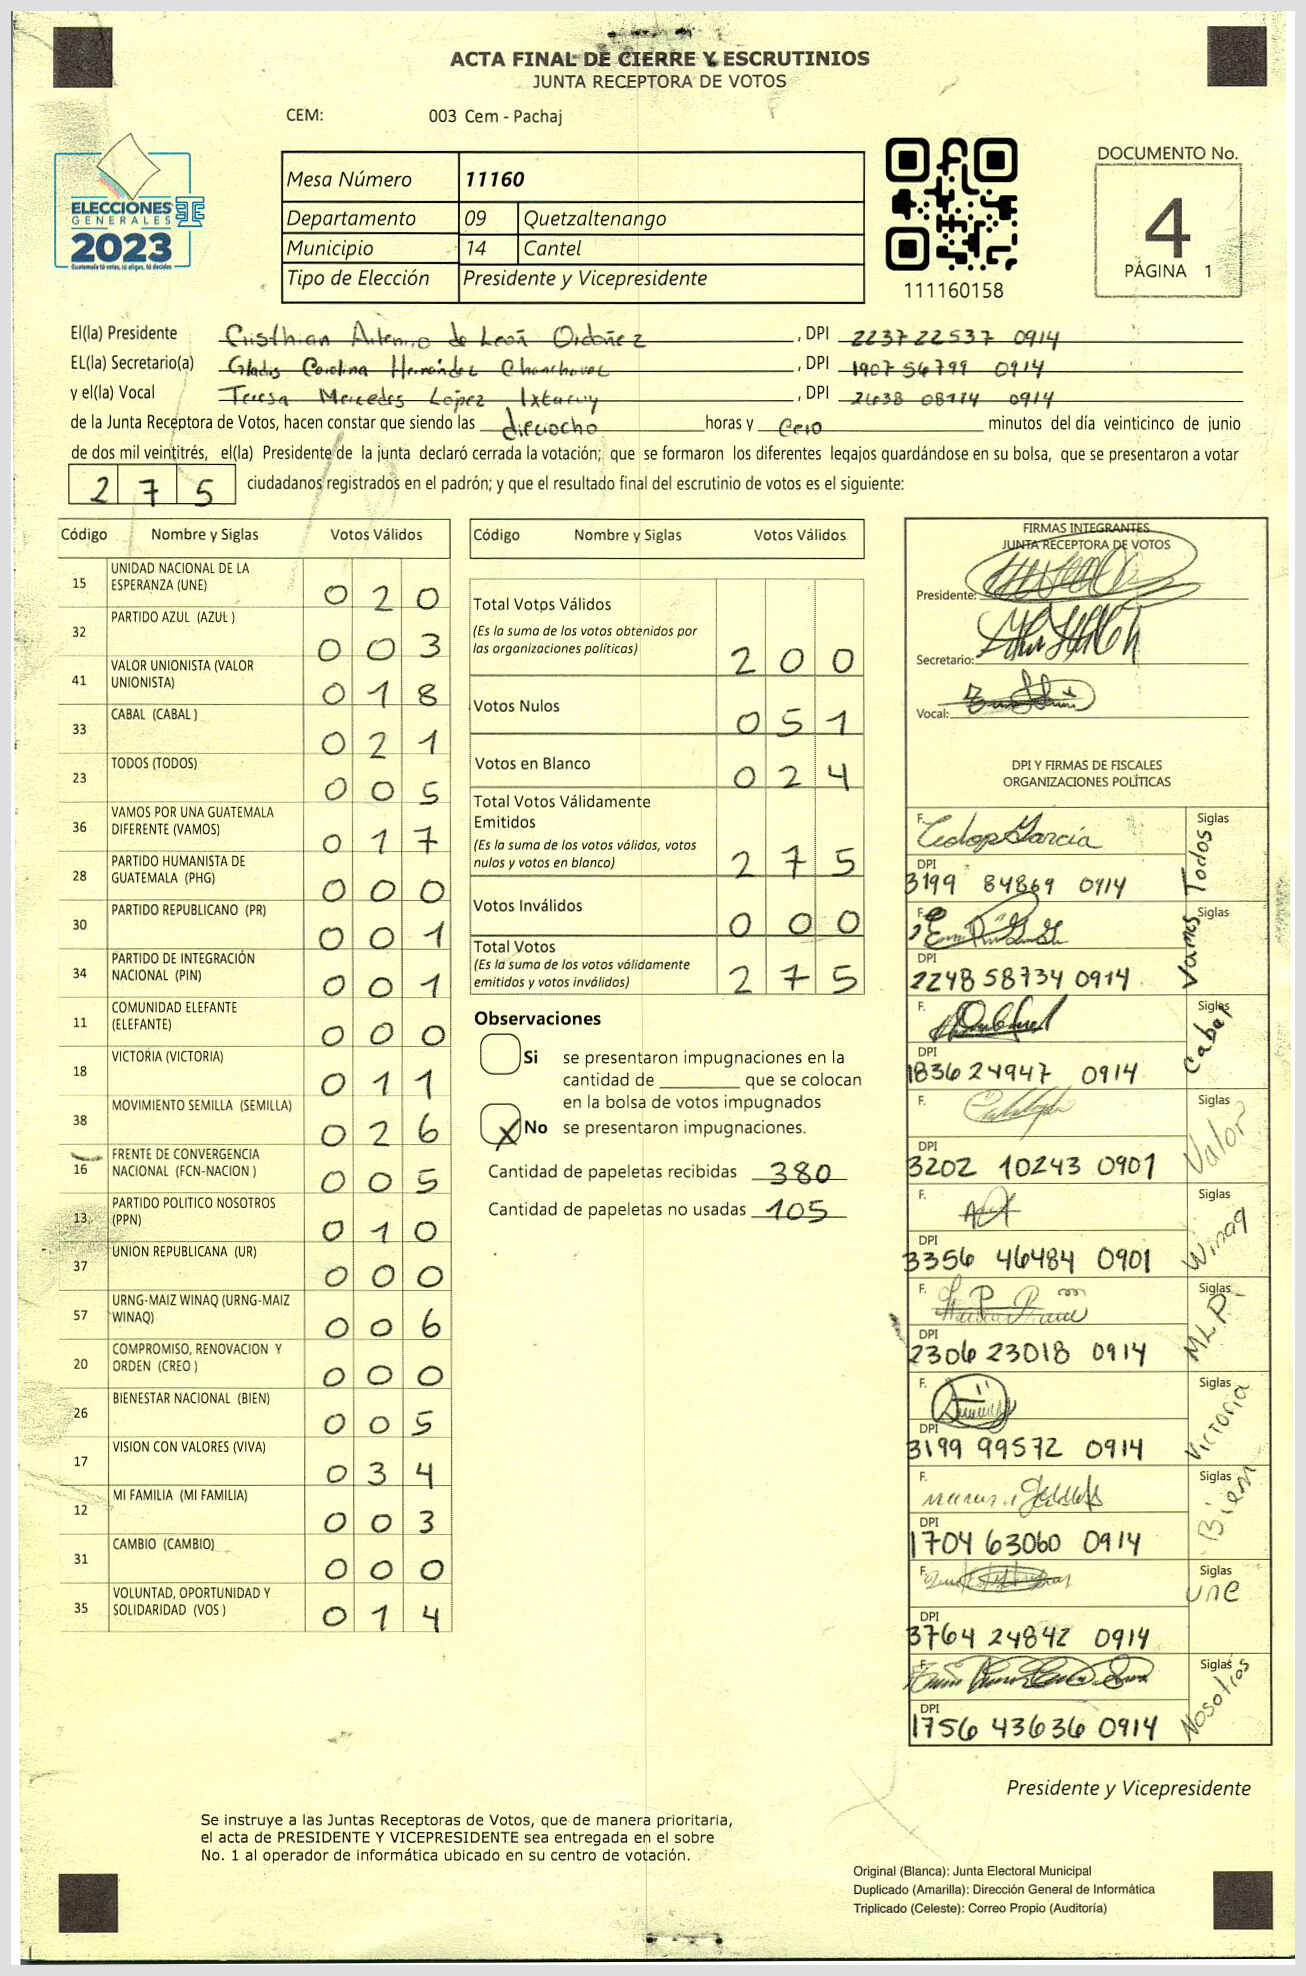 ACTA FINAL DE CIERRE Y ESCRUTINIOS
JUNTA RECEPTORA DE VOTOS
CEM: 003 Cem - Pachaj
ELECCIONES
GENERALES
2023
Guatemala tú votas, tú eliges, tú decides
Mesa Número 11160
Departamento 09 Quetzaltenango
Municipio 14 Cantel
Tipo de Elección Presidente y Vicepresidente
111160158
DOCUMENTO No.
4
PÁGINA 1
El(la) Presidente Cristhian Artemio de León Ordóñez , DPI 2237 22537 0914
EL(la) Secretario(a) Gladis Carolina Hernández , DPI 1907 56799 0914
y el(la) Vocal Teresa Mercedes López , DPI 0914
de la Junta Receptora de Votos, hacen constar que siendo las dieciocho horas y cero minutos del día veinticinco de junio
de dos mil veintitrés, el(la) Presidente de la junta declaró cerrada la votación; que se formaron los diferentes legajos guardándose en su bolsa, que se presentaron a votar
275 ciudadanos registrados en el padrón; y que el resultado final del escrutinio de votos es el siguiente:
Código Nombre y Siglas Votos Válidos
15 UNIDAD NACIONAL DE LA ESPERANZA (UNE) 020
32 PARTIDO AZUL (AZUL ) 003
41 VALOR UNIONISTA (VALOR UNIONISTA) 018
33 CABAL (CABAL ) 021
23 TODOS (TODOS) 005
36 VAMOS POR UNA GUATEMALA DIFERENTE (VAMOS) 017
28 PARTIDO HUMANISTA DE GUATEMALA (PHG) 000
30 PARTIDO REPUBLICANO (PR) 001
34 PARTIDO DE INTEGRACIÓN NACIONAL (PIN) 001
11 COMUNIDAD ELEFANTE (ELEFANTE) 000
18 VICTORIA (VICTORIA) 011
38 MOVIMIENTO SEMILLA (SEMILLA) 026
16 FRENTE DE CONVERGENCIA NACIONAL (FCN-NACION ) 005
13 PARTIDO POLITICO NOSOTROS (PPN) 010
37 UNION REPUBLICANA (UR) 000
57 URNG-MAIZ WINAQ (URNG-MAIZ WINAQ) 006
20 COMPROMISO, RENOVACION Y ORDEN (CREO ) 000
26 BIENESTAR NACIONAL (BIEN) 005
17 VISION CON VALORES (VIVA) 034
12 MI FAMILIA (MI FAMILIA) 003
31 CAMBIO (CAMBIO) 000
35 VOLUNTAD, OPORTUNIDAD Y SOLIDARIDAD (VOS ) 014
Código Nombre y Siglas Votos Válidos
Total Votos Válidos
(Es la suma de los votos obtenidos por
las organizaciones políticas) 200
Votos Nulos 051
Votos en Blanco 024
Total Votos Válidamente
Emitidos
(Es la suma de los votos válidos, votos
nulos y votos en blanco) 275
Votos Inválidos 000
Total Votos
(Es la suma de los votos válidamente
emitidos y votos inválidos) 275
Observaciones
Si se presentaron impugnaciones en la
cantidad de ________ que se colocan
en la bolsa de votos impugnados
X No se presentaron impugnaciones.
Cantidad de papeletas recibidas 380
Cantidad de papeletas no usadas 105
FIRMAS INTEGRANTES
JUNTA RECEPTORA DE VOTOS
Presidente:
Secretario:
Vocal:
DPI Y FIRMAS DE FISCALES
ORGANIZACIONES POLÍTICAS
F. García Siglas Todos
DPI 3199 84869 0914
F. Siglas Vamos
DPI 2248 58734 0914
F. Siglas Cabal
DPI 1836 24947 0914
F. Siglas Valor
DPI 3202 10243 0901
F. Siglas Winaq
DPI 3356 46484 0901
F. Siglas MLP.
DPI 2306 23018 0914
F. Siglas Victoria
DPI 3199 99572 0914
F. Siglas Bien
DPI 1704 63060 0914
F. Siglas une
DPI 3764 24842 0914
F. Siglas Nosotros
DPI 1756 43636 0914
Presidente y Vicepresidente
Se instruye a las Juntas Receptoras de Votos, que de manera prioritaria,
el acta de PRESIDENTE Y VICEPRESIDENTE sea entregada en el sobre
No. 1 al operador de informática ubicado en su centro de votación.
Original (Blanca): Junta Electoral Municipal
Duplicado (Amarilla): Dirección General de Informática
Triplicado (Celeste): Correo Propio (Auditoría)